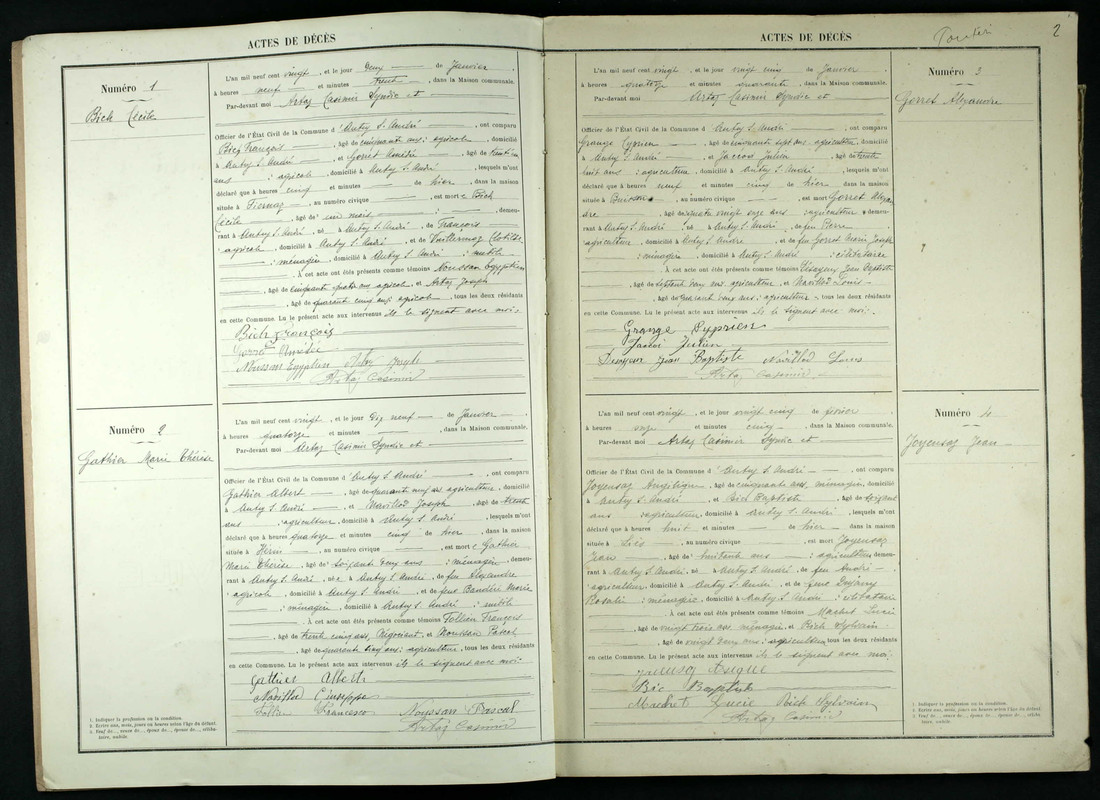 ACTES DE DÉCÈS
Numéro 1
Bich Cécile
L'an mil neuf cent vingt, et le jour deux de Janvier,
à heures neuf et minutes trente, dans la Maison communale.
Par-devant moi Artaz Casimir Syndic et
Officier de l'État Civil de la Commune d'Antey S. André, ont comparu
Bich François, âgé de cinquante ans, agricole, domicilié
à Antey S. André, et Gorret Amédée, âgé de trente un
ans agricole, domicilié à Antey S. André, lesquels m'ont
déclaré que à heures cinq et minutes de hier, dans la maison
située à Fiernaz, au numéro civique, est morte Bich
Cécile, âgé de un mois, demeu-
rant à Antey S. André, né à Antey S. André, de François
agricole, domicilié à Antey S. André, et de Vuillermoz Clotilde
ménagère, domicilié à Antey S. André : nubile
. À cet acte ont étés présents comme témoins Noussan Egyptien
, âgé de cinquante quatre ans agricole, et Artaz Joseph
, âgé de quarante cinq ans, agricole, tous les deux résidants
en cette Commune. Lu le présent acte aux intervenus ils le signent avec moi.
Bich François
Gorret Amédée
Noussan Egyptien Artaz Joseph
Artaz Casimir
Numéro 2
Gathier Marie Thérèse
L'an mil neuf cent vingt, et le jour dix neuf de Janvier,
à heures quatorze et minutes, dans la Maison communale.
Par-devant moi Artaz Casimir Syndic et
Officier de l'État Civil de la Commune d'Antey S. André, ont comparu
Gathier Albert, âgé de quarante neuf ans agriculteur, domicilié
à Antey S. André, et Navillod Joseph, âgé de trente
ans : agriculteur, domicilié à Antey S. André, lesquels m'ont
déclaré que à heures quatorze et minutes cinq de hier, dans la maison
située à Hérin, au numéro civique, est morte Gathier
Marie Thérèse, âgé de soixante ans : ménagère, demeu-
rant à Antey S. André, née à Antey S. André, de feu Alexandre
agricole, domicilié à Antey S. André, et de feue Marie
: ménagère, domicilié à Antey S. André : nubile
. À cet acte ont étés présents comme témoins Tollien François
, âgé de trente cinq ans, Négociant, et Noussan Pascal
, âgé de quarante cinq ans : agriculteur, tous les deux résidants
en cette Commune. Lu le présent acte aux intervenus ils le signent avec moi.
Gathier Albert
Navillod Giuseppe
Francesco Noussan Pascal
Artaz Casimir
1. Indiquer la profession ou la condition.
2. Ecrire ans, mois, jours ou heures selon l'âge du défunt
3. Veuf de.., veuve de.., époux de.., épouse de.., céliba-
taire, nubile.
ACTES DE DÉCÈS
2
Numéro 3
Gorret Alexandre
L'an mil neuf cent vingt, et le jour vingt cinq de Janvier,
à heures quatorze et minutes quarante, dans la Maison communale.
Par-devant moi Artaz Casimir Syndic et
Officier de l'État Civil de la Commune d'Antey S. André, ont comparu
Grange Cyprien, âgé de cinquante sept ans agriculteur, domicilié
à Antey S. André, et Jaccod Julien, âgé de trente
huit ans : agriculteur, domicilié à Antey S. André, lesquels m'ont
déclaré que à heures neuf et minutes cinq de hier, dans la maison
située à Buisson, au numéro civique, est mort Gorret Alexan
dre, âgé de quatre vingt onze ans : agriculteur, demeu-
rant à Antey S. André, né à Antey S. André, de feu Pierre
agriculteur, domicilié à Antey S. André, et de feu Gorret Marie
: ménagère, domicilié à Antey S. André : célibataire
. À cet acte ont étés présents comme témoins Jean Baptiste
, âgé de septante ans : agriculteur, et Navillod Louis
, âgé de quarante ans : agriculteur, tous les deux résidants
en cette Commune. Lu le présent acte aux intervenus ils le signent avec moi.
Grange Cyprien
Jean Baptiste Navillod Louis
Artaz Casimir
Numéro 4
Joyeusaz Jean
L'an mil neuf cent vingt, et le jour vingt cinq de février,
à heures onze et minutes cinq, dans la Maison communale.
Par-devant moi Artaz Casimir Syndic et
Officier de l'État Civil de la Commune d'Antey S. André, ont comparu
Joyeusaz Angélique, âgé de cinquante ans, ménagère, domicilié
à Antey S. André, et Bich Baptiste, âgé de soixante
ans : agriculteur, domicilié à Antey S. André, lesquels m'ont
déclaré que à heures huit et minutes de hier, dans la maison
située à Liés, au numéro civique, est mort Joyeusaz
Jean, âgé de huitante ans : agriculteur, demeu-
rant à Antey S. André, né à Antey S. André, de feu André
agriculteur, domicilié à Antey S. André, et de feue
Rosalie : ménagère, domicilié à Antey S. André : célibataire
. À cet acte ont étés présents comme témoins Machet Lucie
, âgé de vingt trois ans ménagère, et Bich Sylvain
, âgé de vingt ans : agriculteur, tous les deux résidants
en cette Commune. Lu le présent acte aux intervenus ils le signent avec moi.
Bic Baptiste
Machet Lucie Bich Sylvain
Artaz Casimir
1. Indiquer la profession ou la condition.
2. Ecrire ans, mois, jours ou heures selon l'âge du défunt
3. Veuf de.., veuve de.., époux de.., épouse de.., céliba-
taire, nubile.